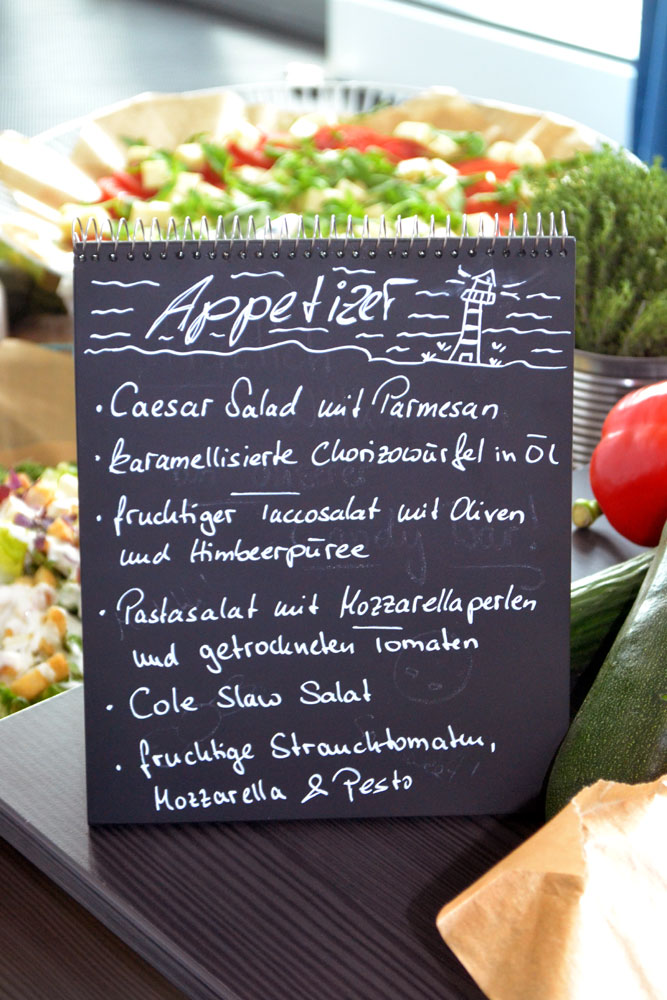 Appetizer
· Caesar Salad mit Parmesan
· karamellisierte Chorizowürfel in ÖL
· fruchtiger Taccosalat mit Oliven
und Himbeerpüree
· Pastasalat mit Mozzarellaperlen
und getrockneten Tomaten
· Cole Slaw Salat
· fruchtige Strauchtomaten,
Mozzarella & Pesto